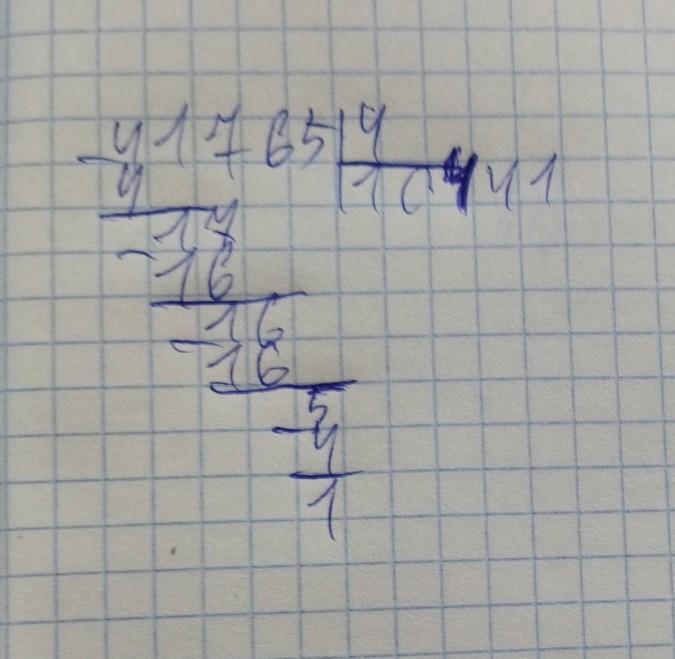 41765 4
4 10441
17
16
16
16
5
4
1